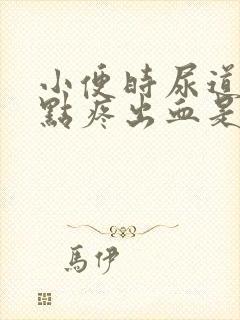 小便時尿道
點疼出血是
馬伊